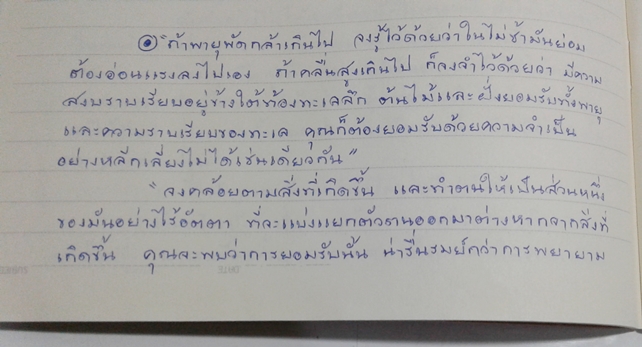 "ถ้าพายุพัดกล้าเกินไป จงรู้ไว้ด้วยว่าในไม่ช้ามันย่อม
ต้องอ่อนแรงลงไปเอง ถ้าคลื่นสูงเกินไป ก็จงจำไว้ด้วยว่า มีความ
สงบราบเรียบอยู่ข้างใต้ท้องทะเลลึก ต้นไม้และฝั่งยอมรับทั้งพายุ
และความราบเรียบของทะเล คุณก็ต้องยอมรับด้วยความจำเป็น
อย่างหลีกเลี่ยงไม่ได้เช่นเดียวกัน"
"จงคล้อยตามสิ่งที่เกิดขึ้น และทำตนให้เป็นส่วนหนึ่ง
ของมันอย่างไร้อัตตา ที่จะแบ่งแยกตัวตนออกมาต่างหากจากสิ่งที่
เกิดขึ้น คุณจะพบว่าการยอมรับนั้น น่ารื่นรมย์กว่าการพยายาม